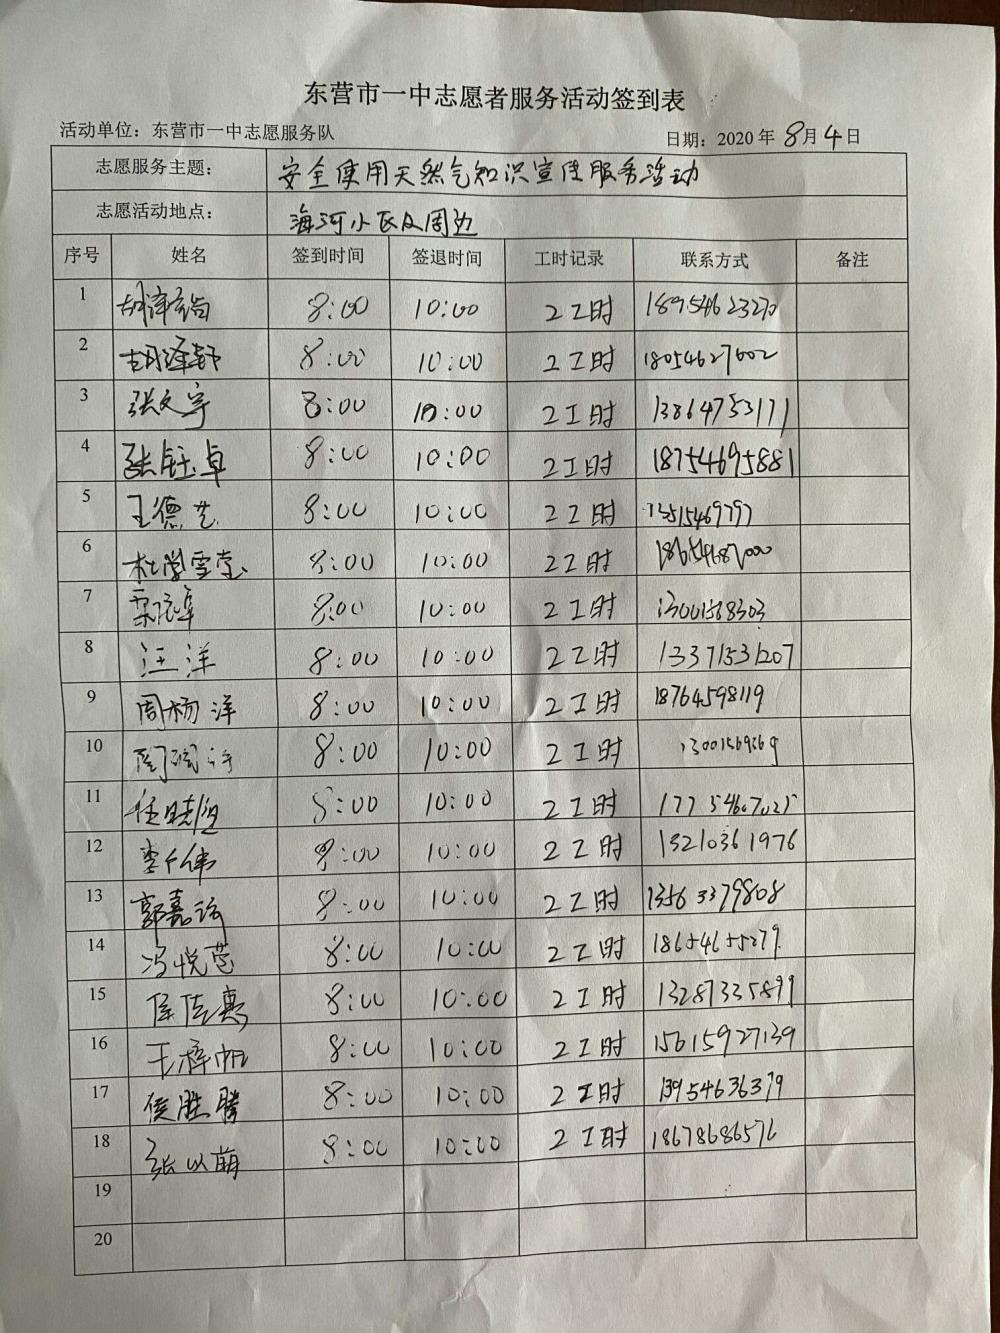 东营市一中志愿者服务活动签到表
活动单位：东营市一中志愿服务队 日期：2020 年 8月 4 日
志愿服务主题： 安全使用天然气知识宣传服务活动
志愿活动地点： 海河小区及周边
序号 姓名 签到时间 签退时间 工时记录 联系方式 备注
1 8:00 10:00 2工时 18954623270
2 胡泽轩 8:00 10:00 2工时 18054627602
3 张文宇 8:00 10:00 2工时 13864753171
4 张钰卓 8:00 10:00 2工时 18754695881
5 王德艺 8:00 10:00 2工时 13515469797
6 杜学雪莹 8:00 10:00 2工时
7 8:00 10:00 2工时 13001568303
8 汪洋 8:00 10:00 2工时 13371531207
9 周杨洋 8:00 10:00 2工时 18764598119
10 8:00 10:00 2工时
11 任晓恒 8:00 10:00 2工时
12 李仁伟 8:00 10:00 2工时 13210361976
13 郭嘉诉 8:00 10:00 2工时 13563379808
14 冯悦莹 8:00 10:00 2工时 18654655279
15 侯佳惠 8:00 10:00 2工时 13287335899
16 王梓帆 8:00 10:00 2工时 15615927139
17 侯胜腾 8:00 10:00 2工时 13954636379
18 张以萌 8:00 10:00 2工时 18678686576
19
20